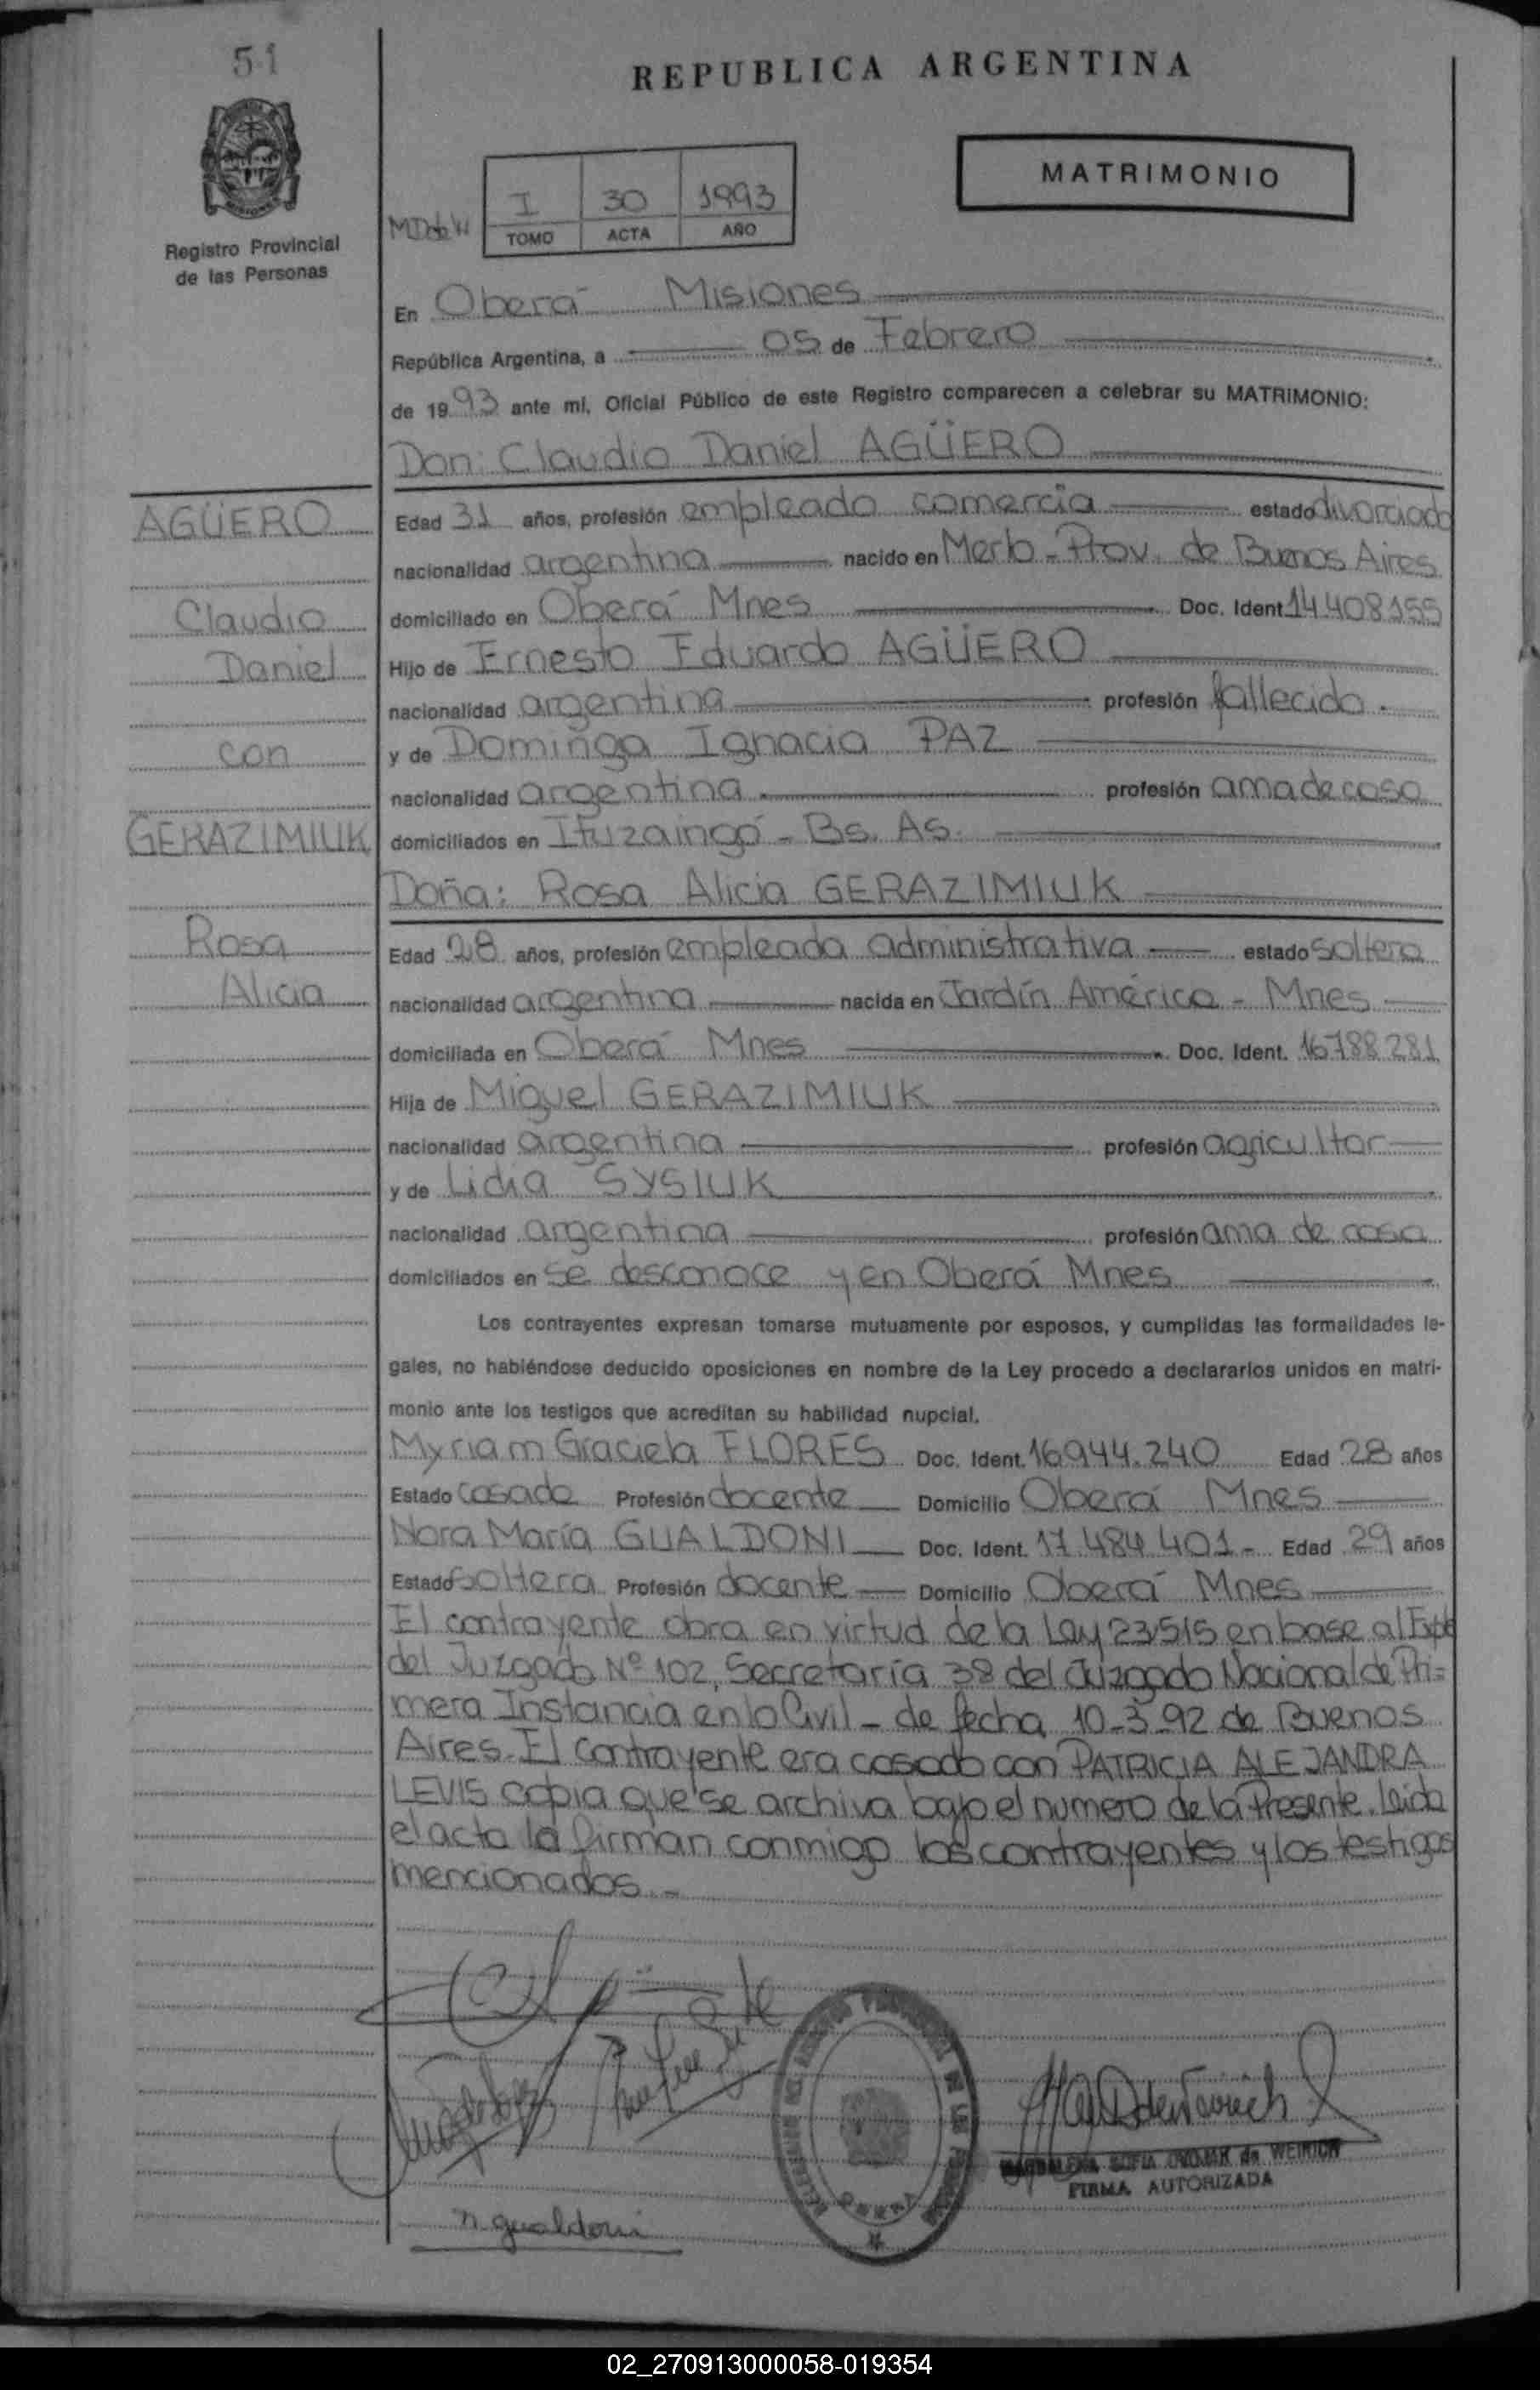 51
REPUBLICA ARGENTINA
MATRIMONIO
Registro Provincial
de las Personas
I 30 1993
TOMO ACTA AÑO
En Oberá Misiones
República Argentina, a 05 de Febrero
de 1993 ante mi, Oficial Público de este Registro comparecen a celebrar su MATRIMONIO:
Don: Claudio Daniel AGÜERO
AGÜERO
Claudio
Daniel
con
GERAZIMIUK
Rosa
Alicia
Edad 31 años, profesión empleado comercio estado divorciado
nacionalidad argentina nacido en Merlo - Prov. de Buenos Aires
domiciliado en Oberá Mnes Doc. Ident 14.408155
Hijo de Ernesto Eduardo AGÜERO
nacionalidad argentina profesión fallecido.
y de Dominga Ignacia PAZ
nacionalidad argentina profesión ama de casa
domiciliados en Ituzaingó - Bs. As.
Doña: Rosa Alicia GERAZIMIUK
Edad 28 años, profesión empleada administrativa estado soltera
nacionalidad argentina nacida en Jardín América - Mnes
domiciliada en Oberá Mnes Doc. Ident. 16788281
Hija de Miguel GERAZIMIUK
nacionalidad argentina profesión agricultor
y de Lidia SYSIUK
nacionalidad argentina profesión ama de casa
domiciliados en se desconoce y en Oberá Mnes
Los contrayentes expresan tomarse mutuamente por esposos, y cumplidas las formalidades le-
gales, no habiéndose deducido oposiciones en nombre de la Ley procedo a declararlos unidos en matri-
monio ante los testigos que acreditan su habilidad nupcial.
Myriam Graciela FLORES Doc. Ident. 16944.240 Edad 28 años
Estado casada Profesión docente Domicilio Oberá Mnes
Nora María GUALDONI Doc. Ident. 17.484.401- Edad 29 años
Estado soltera Profesión docente Domicilio Oberá Mnes
El contrayente obra en virtud de la Ley 23515 en base al Expte
del Juzgado Nº 102, Secretaría 38 del Juzgado Nacional de Pri=
mera Instancia en lo Civil - de fecha 10-3-92 de Buenos
Aires - El contrayente era casado con PATRICIA ALEJANDRA
LEVIS copia que se archiva bajo el numero de la Presente. Leida
el acta la firman conmigo los contrayentes y los testigos
mencionados. -
n. gualdoni
SOFIA de WEIRICH
FIRMA AUTORIZADA
02_270913000058-019354